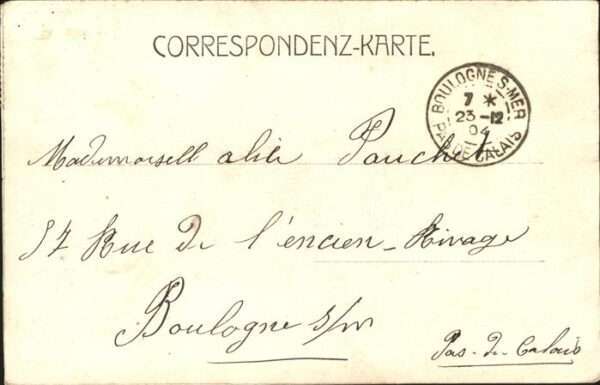 CORRESPONDENZ-KARTE.
BOULOGNE S-MER
7 *
23 -12
04
PAS DE CALAIS
Mademoisell alile Pauchet
57 Rue de l'encien-Rivage
Boulogne s/m
Pas-de Calais